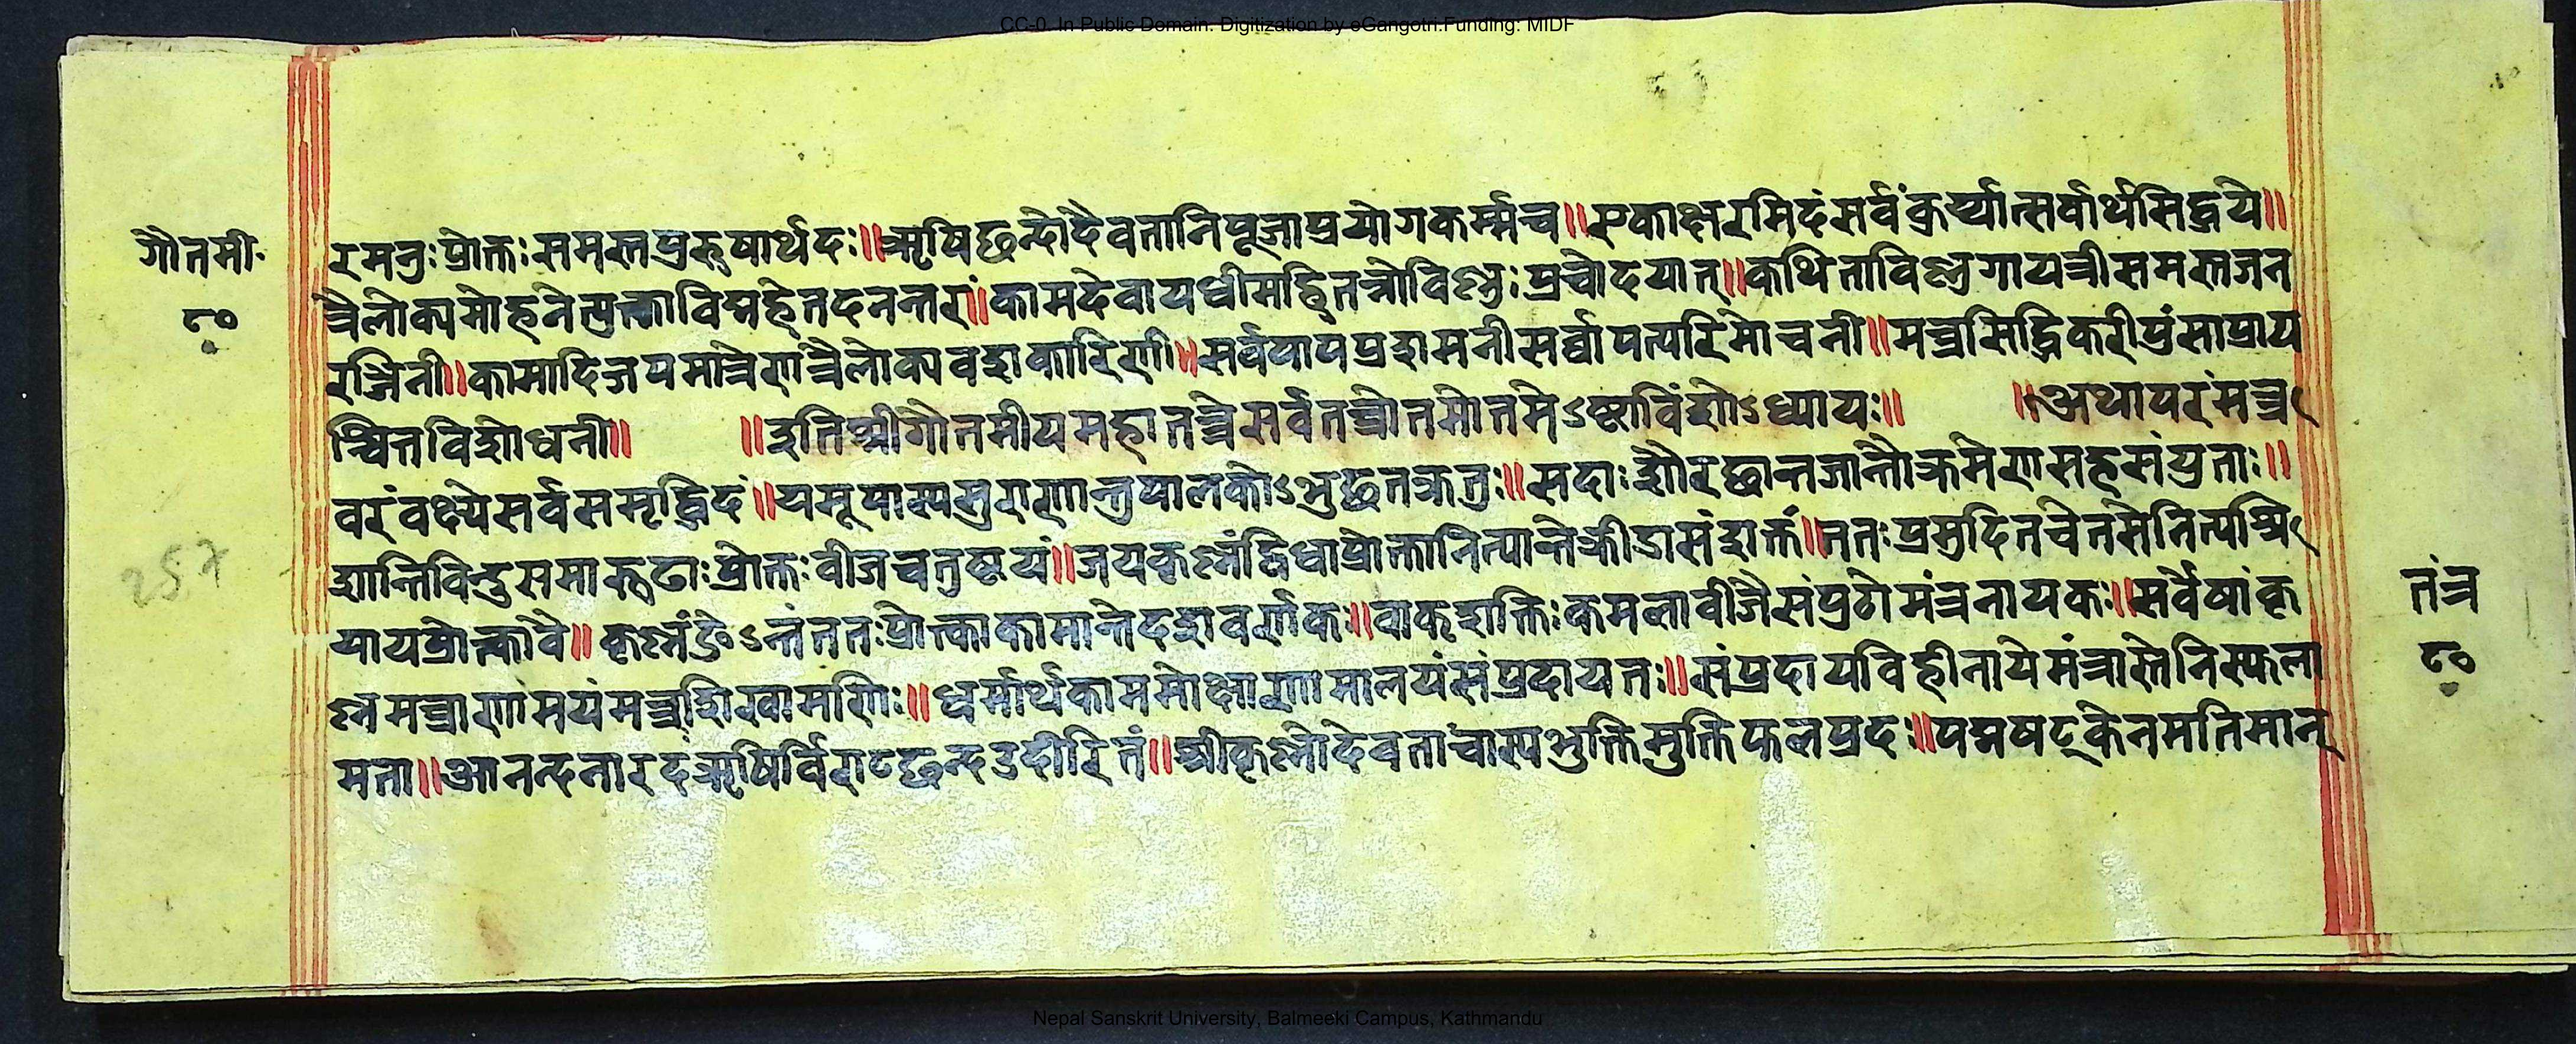 CC-0. In Public Domain. Digitization by eGangotri.Funding: MIDF
गौतमी
८०
रमनुःप्रोक्तःसमस्तपुरुषार्थदः॥ऋषिछन्दोदैवतानिपूजाप्रयोगकर्म्मच॥एकाक्षरमिदंसर्वंकुर्य्यात्सर्वार्थसिद्धये॥
त्रैलोक्यमोहनेत्युक्त्वाविद्महेतदनन्तरं॥कामदेवायधीमहितन्नोविष्णुःप्रचोदयात्॥कथिताविष्णुगायत्रीसमस्तजन
रञ्जिनी॥कामादिजपमात्रेणत्रैलोक्यवशकारिणी॥सर्वपापप्रशमनीसर्व्वापत्परिमोचनी॥मन्त्रसिद्धिकरीपुंसाप्राय
श्चित्तविशोधनी॥ ॥इतिश्रीगौतमीयमहातन्त्रेसर्वतन्त्रोतमोतमेऽष्टाविंशोऽध्यायः॥ ॥अथापरंमन्त्र
वरंवक्ष्येसर्वसमृद्धिदं॥यमूपास्यसुरगणान्तु सदाःशौरछान्तजान्तौक्रमेणसहसंयुताः॥
शान्तिविन्दुसमारुढाःप्रोक्तःवीजचतुष्टयं॥जयकृष्णंद्विधाप्रोक्तानित्यान्तेक्रीडासंशक्तं॥ततःप्रमुदितचेतसेनित्यश्रि
यायप्रोक्त्कावै॥कृष्णंङेऽन्तंततःप्रोक्त्काकामान्तेदशवर्णकः॥वाक्शक्तिःकमलावीजैसंपुठोमंत्रनायकः॥सर्वेषांकृ
ष्णमन्त्राणामयंमन्त्रशिखामणिः॥धर्मार्थकाममोक्षाणामालयंसंप्रदायतः॥संप्रदायविहीनायेमंत्रास्तेनिस्फला
मता॥आनन्दनारदंऋषिर्विराट्छन्दउदीरितं॥श्रीकृष्णोदेवतांचास्यभुक्तिमुक्तिफलप्रदः॥पद्मषट्केनमतिमान्
257
तंत्र
८०
Nepal Sanskrit University, Balmeeki Campus, Kathmandu